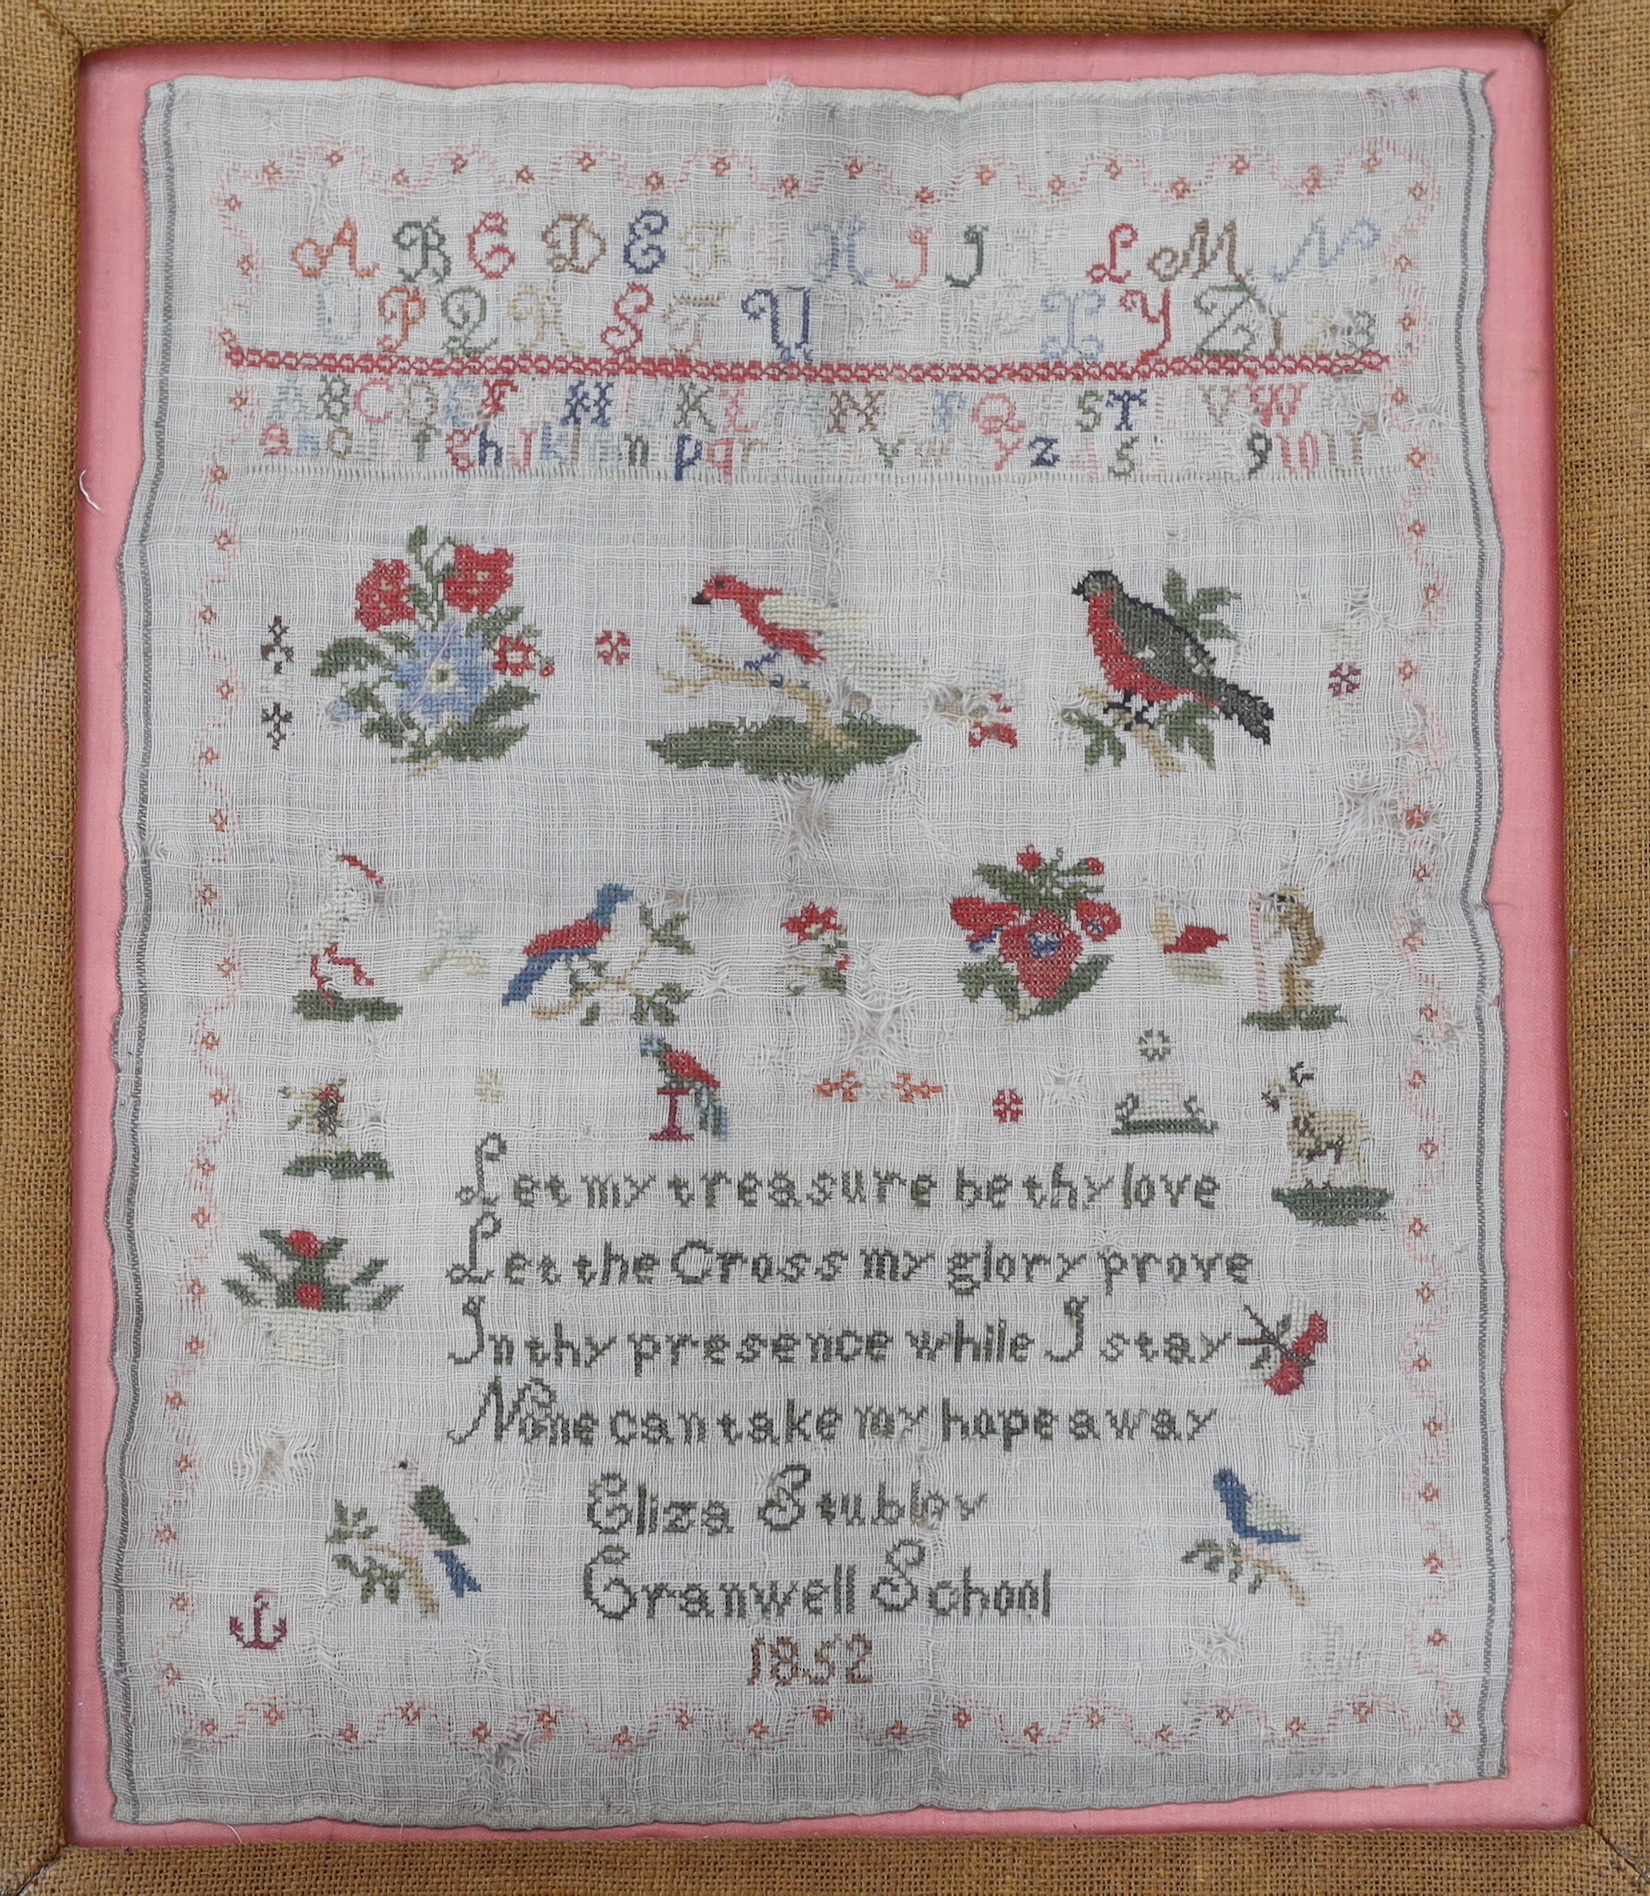 A B C D E F H I J L M N
O P Q R S T U X Y Z 1 2 3
A B C D E F H I J K L M N P Q S T V W
a b c f g h j k l m n p q r v w y z 4 5 9 10 11
Let my treasure be thy love
Let the Cross my glory prove
In thy presence while I stay
None can take my hope away
Eliza Stubley
Cranwell School
1852